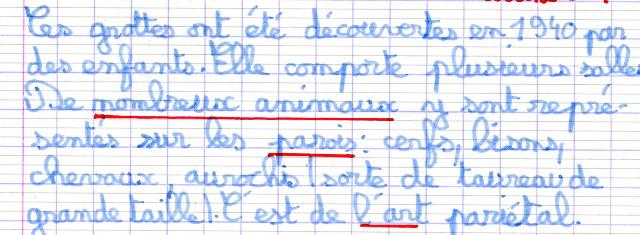 Ces grottes ont été découvertes en 1940 par
des enfants. Elle comporte plusieurs salles
De nombreux animaux y sont repré-
sentés sur les parois : cerfs, bisons,
chevaux, aurochs (sorte de taureau de
grande taille). C'est de l'art pariétal.